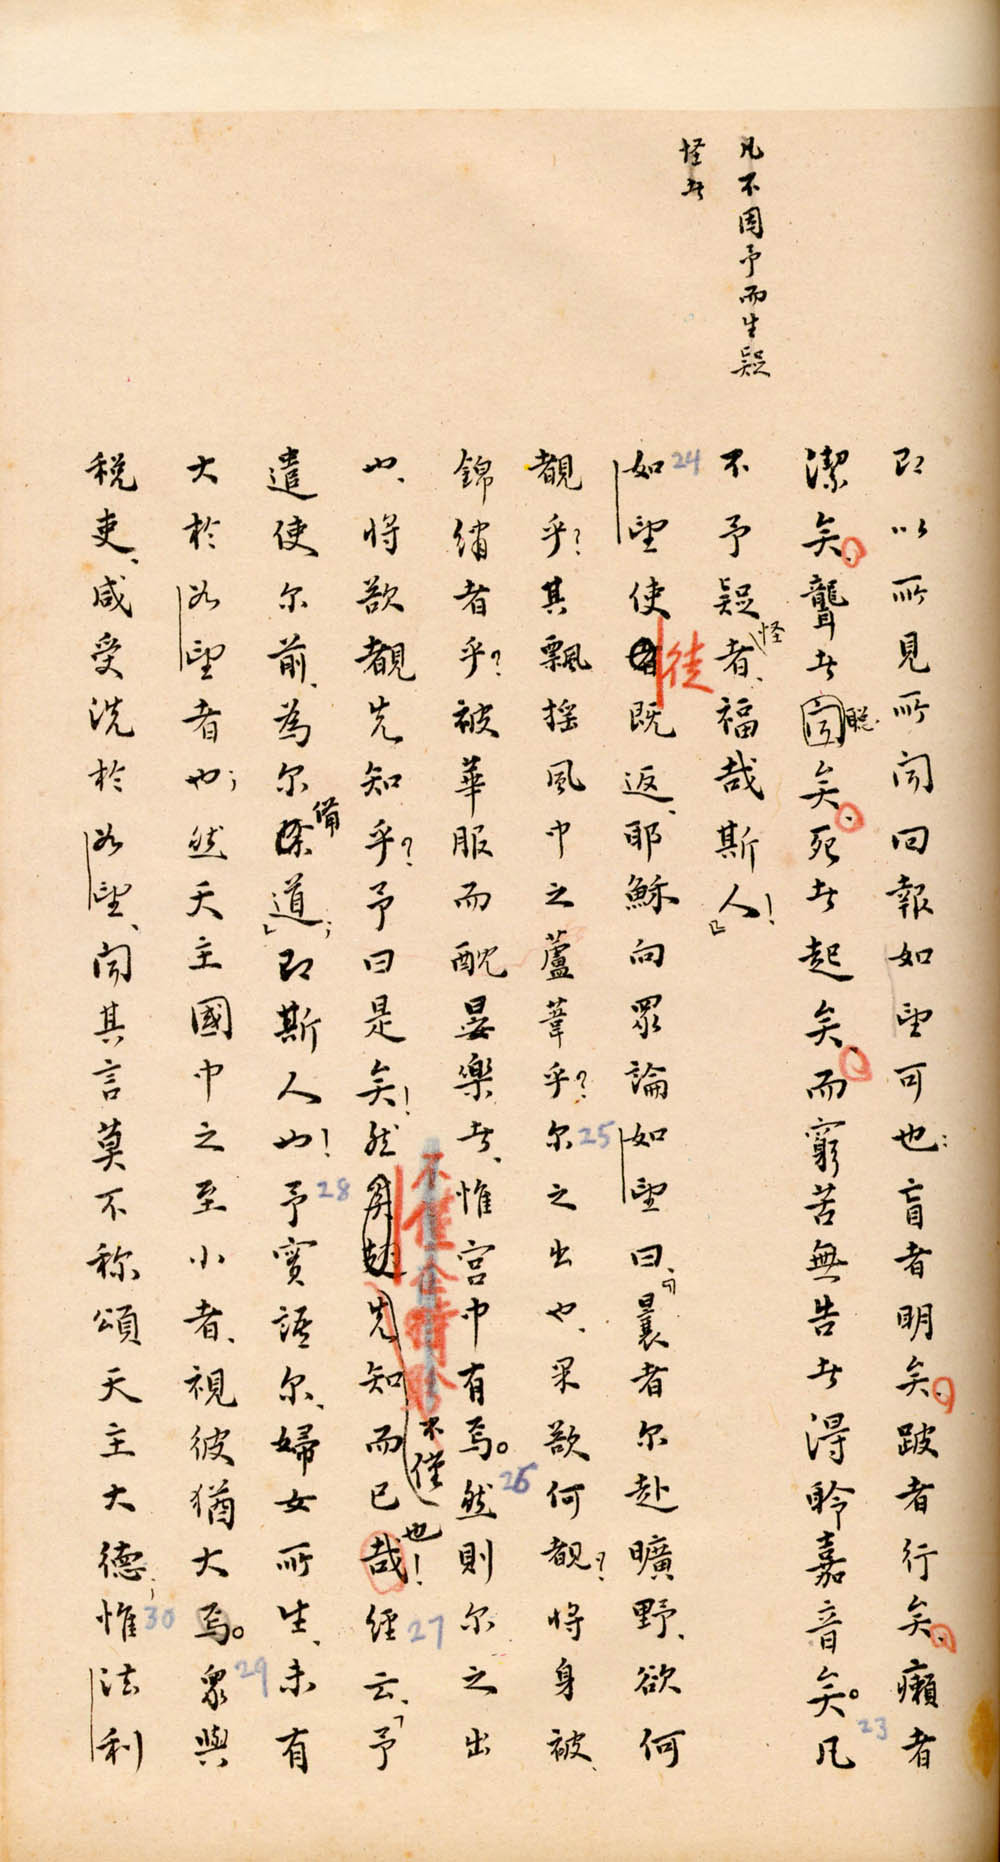 凡不因予而生疑
怪者
即以所見所聞回報如望可也：盲者明矣、跛者行矣、癩者
潔矣、聾者聞聰矣、死者起矣、而窮苦無告者得聆嘉音矣。23凡
不予疑怪者、福哉斯人！』
24如望使徒既返、耶穌向眾論如望曰、『曩者尔赴曠野、欲何
覩乎？其飄搖風中之蘆葦乎？25尔之出也、果欲何覩？將身被
錦繡者乎？被華服而酖晏樂者、惟宮中有焉。26然則尔之出
也、將欲覩先知乎？予曰是矣！然不僅先知而已哉也！27經云、「予
遣使尔前、為尔備道」；即斯人也！28予實語尔、婦女所生、未有
大於如望者也；然天主國中之至小者、視彼猶大焉。29眾與
稅吏、咸受洗於如望、聞其言莫不稱頌天主大德；30惟法利